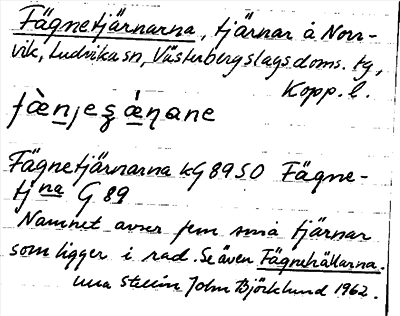 Fägnetjärnarna, tjärnar å Norr-
vik, Ludvika sn, Västerbergslags doms. tg,
Kopp. l.
fæ̀njeʒæ̀ɳane
Fägnetjärnarna kG 89 SO Fägne-
tjna G 89
Namnet avser fem små tjärnar
som ligger i rad. Se även Fägnehällarna.
John Björklund 1962.